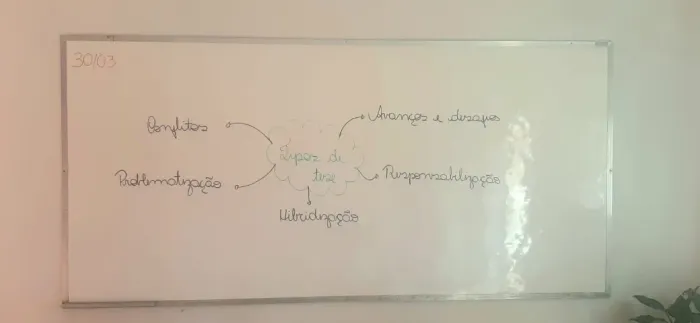 30/03
Conflitos
Avanços e desafios
Tipos de
tese
Problematização
Responsabilização
Hibridização